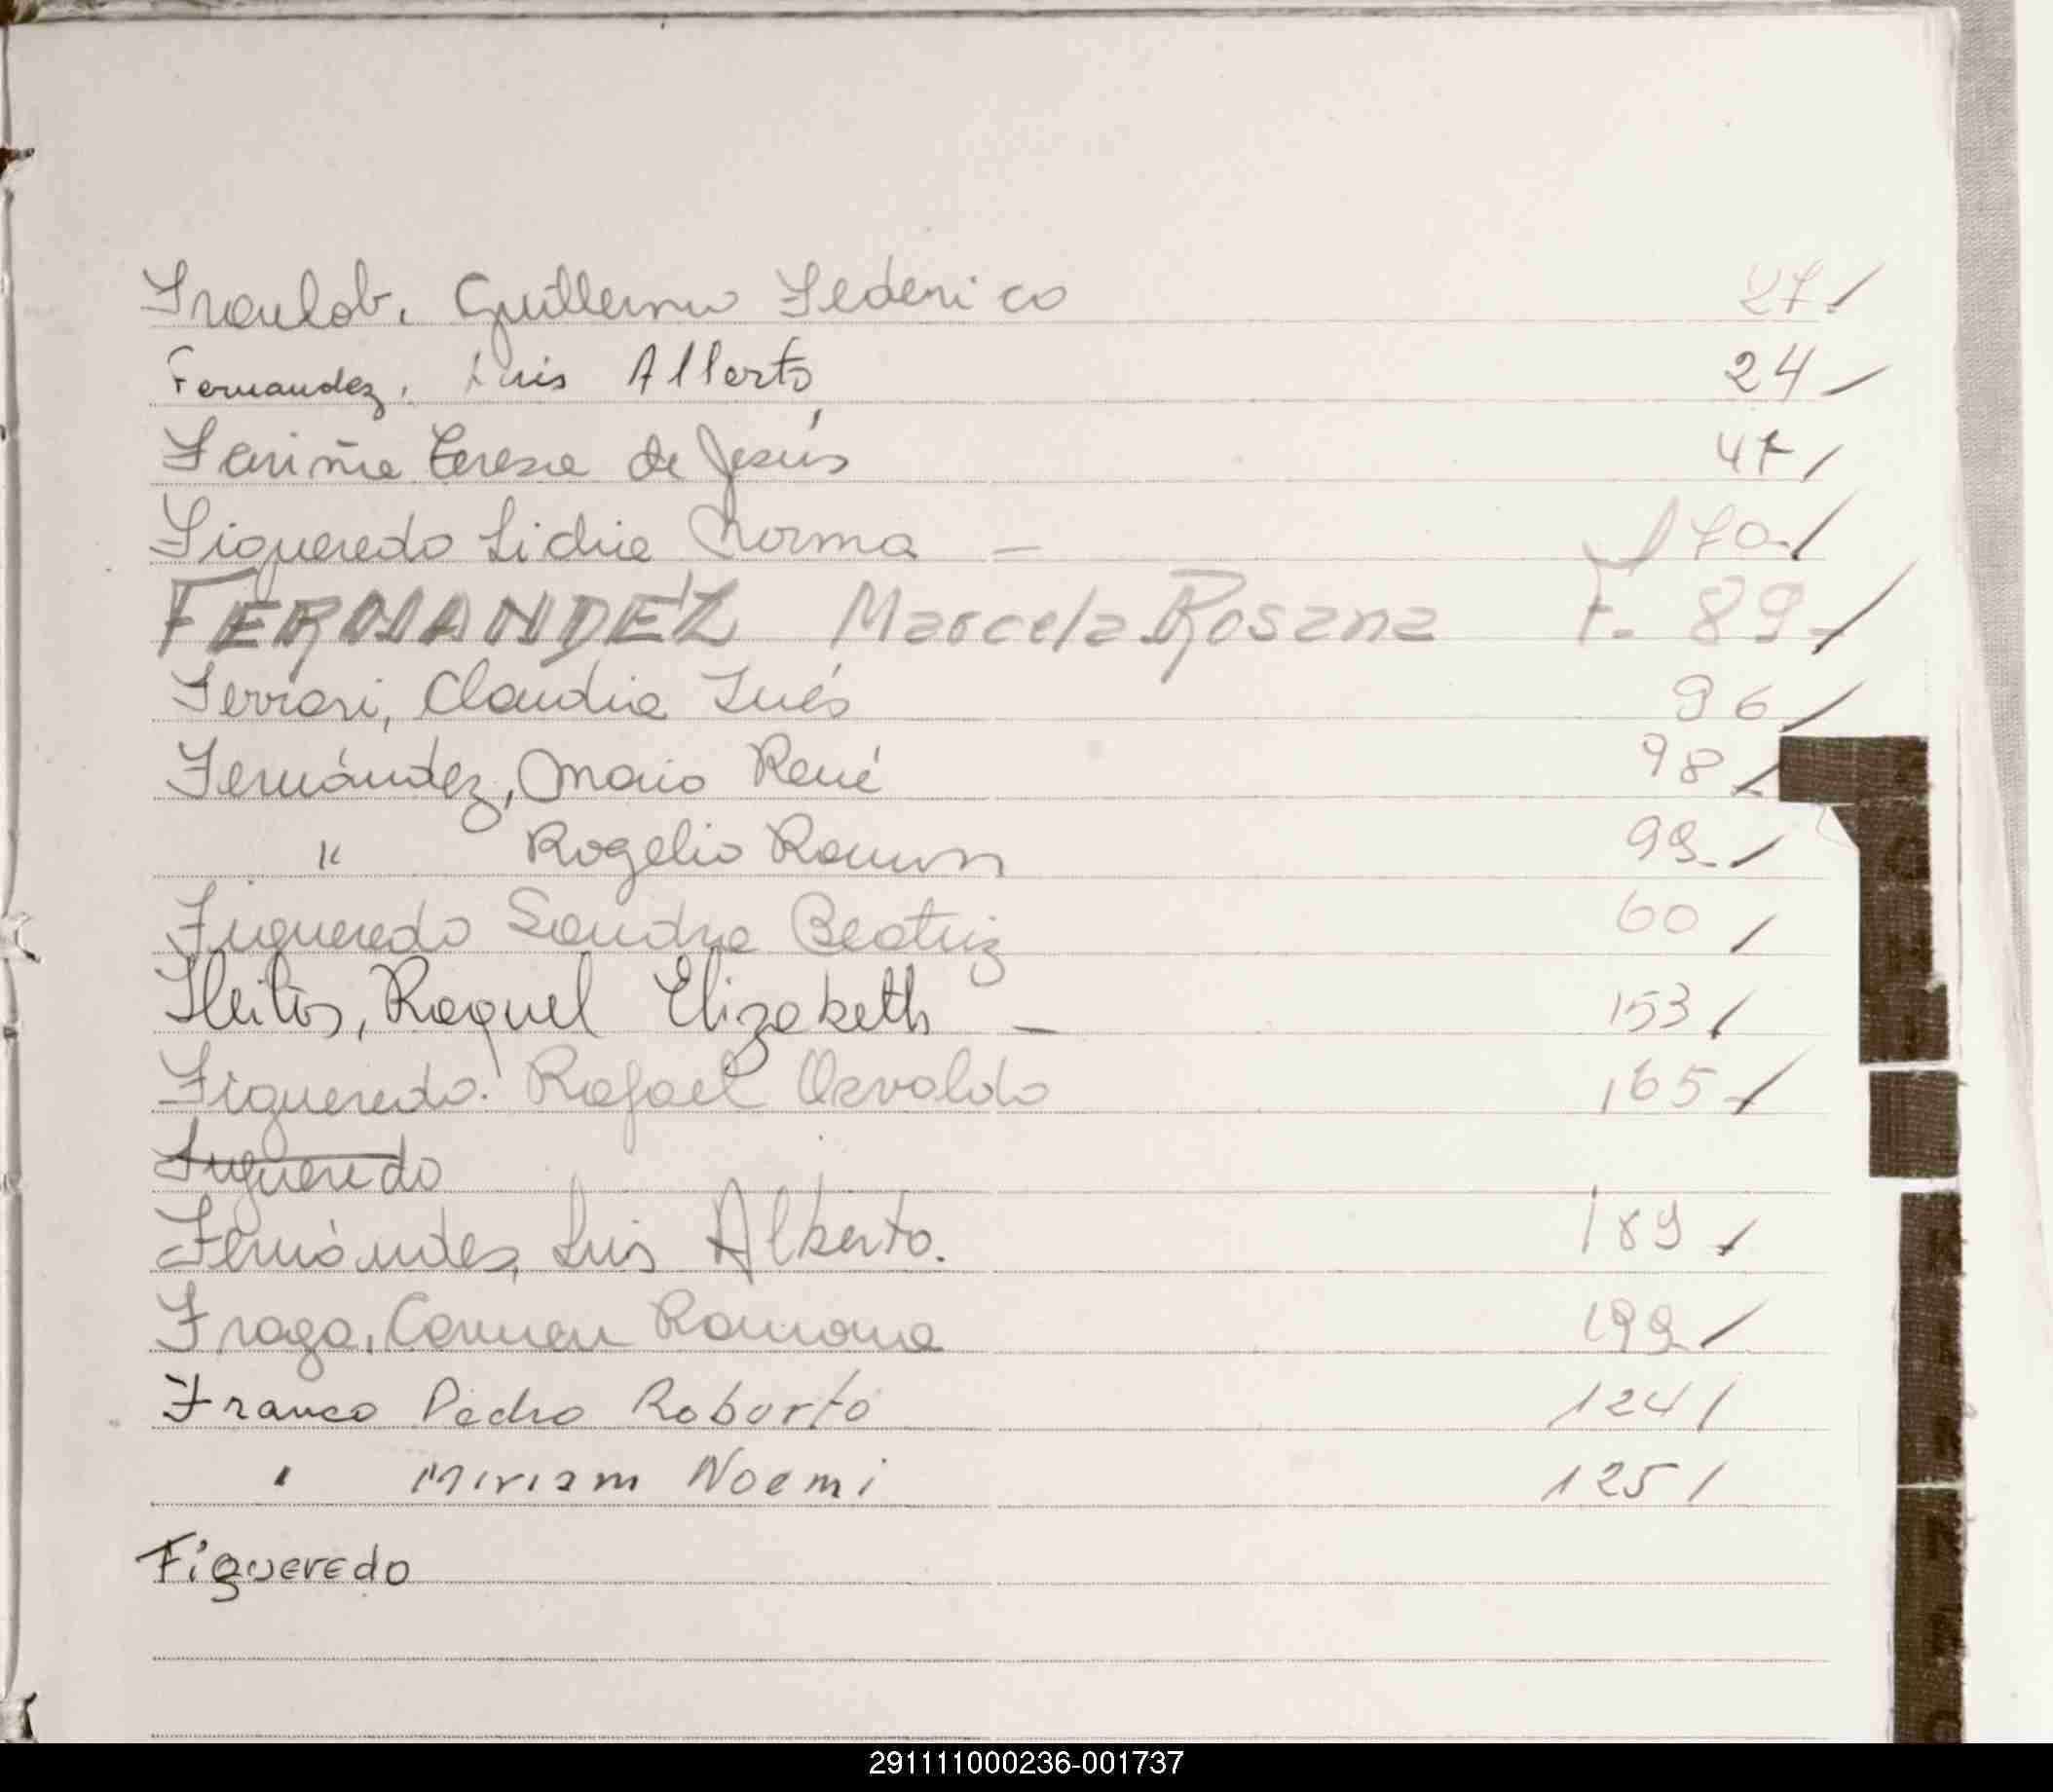 Fraulob, Guillermo Federico 27/
Fernandez, Luis Alberto 24/
Fariña Teresa de Jesús 47/
Figueredo Lidia Norma - 170-/
FERNANDEZ Marcela Rosana F. 89-/
Ferrari, Claudia Inés 96/
Fernández, Mario René 98/
" Rogelio Ramon 99-/
Figueredo Sandra Beatriz 60/
Fleitas, Raquel Elizabeth - 153/
Figueredo. Rafael Osvaldo 165-/
Figueredo
Fernández, Luis Alberto. 189/
Fraga, Carmen Ramona 199/
Franco Pedro Roberto 124/
" Miriam Noemi 125/
Figueredo
291111000236-001737